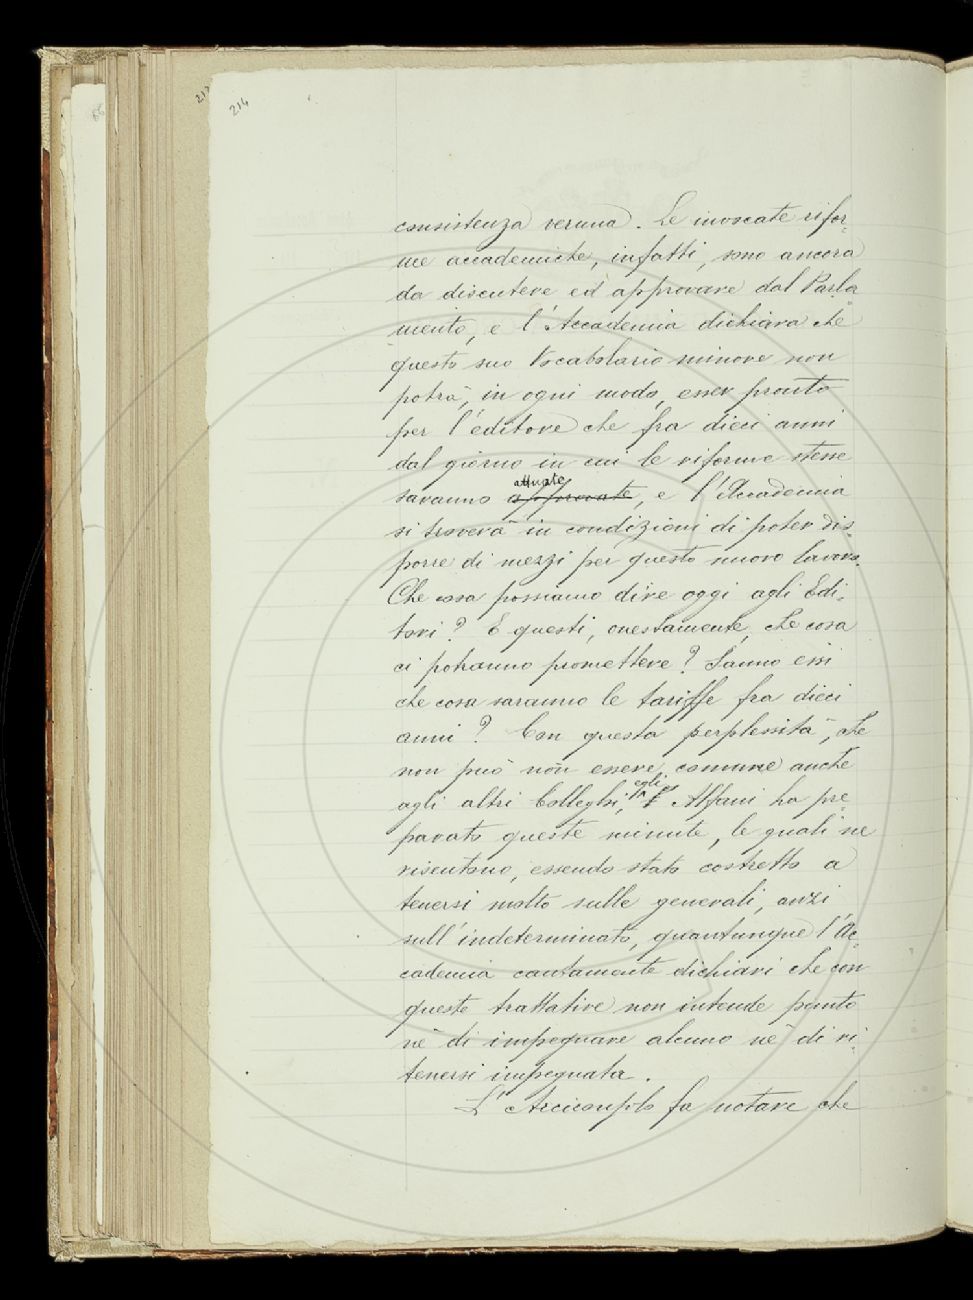 213
214
consistenza veruna. Le invocate rifor-
me accademiche, infatti, sono ancora
da discutere ed approvare dal Parla-
mento, e l'Accademia dichiara che
questo suo Vocabolario minore non
potrà, in ogni modo, esser pronto
per l'editore che fra dieci anni
dal giorno in cui le riforme stesse
attuate
saranno approvate, e l'Accademia
si troverà in condizioni di poter dis-
porre di mezzi per questo nuovo lavoro.
Che cosa possiamo dire oggi agli Edi-
tori? E questi, onestamente, che cosa
ci potranno promettere? Sanno essi
che cosa saranno le tariffe fra dieci
anni? Con questa perplessità, che
non può non essere comune anche
egli
agli altri Colleghi, Alfani ha pre-
parato queste minute, le quali ne
risentono, essendo stato costretto a
tenersi molto sulle generali, anzi
sull'indeterminato, quantunque l'Ac-
cademia cautamente dichiari che con
queste trattative non intende punto
nè di impegnare alcuno nè di ri-
tenersi impegnata.
L'Arciconsolo fa notare che